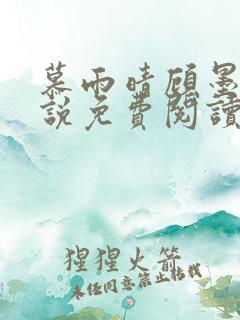 慕雨晴顾墨
說免費閱讀
猩猩火箭
未任同意禁止转载